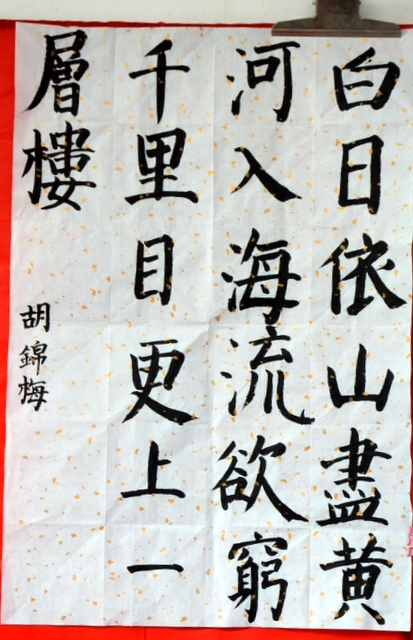 白日依山盡黄
河入海流欲窮
千里目更上一
層樓
胡錦梅